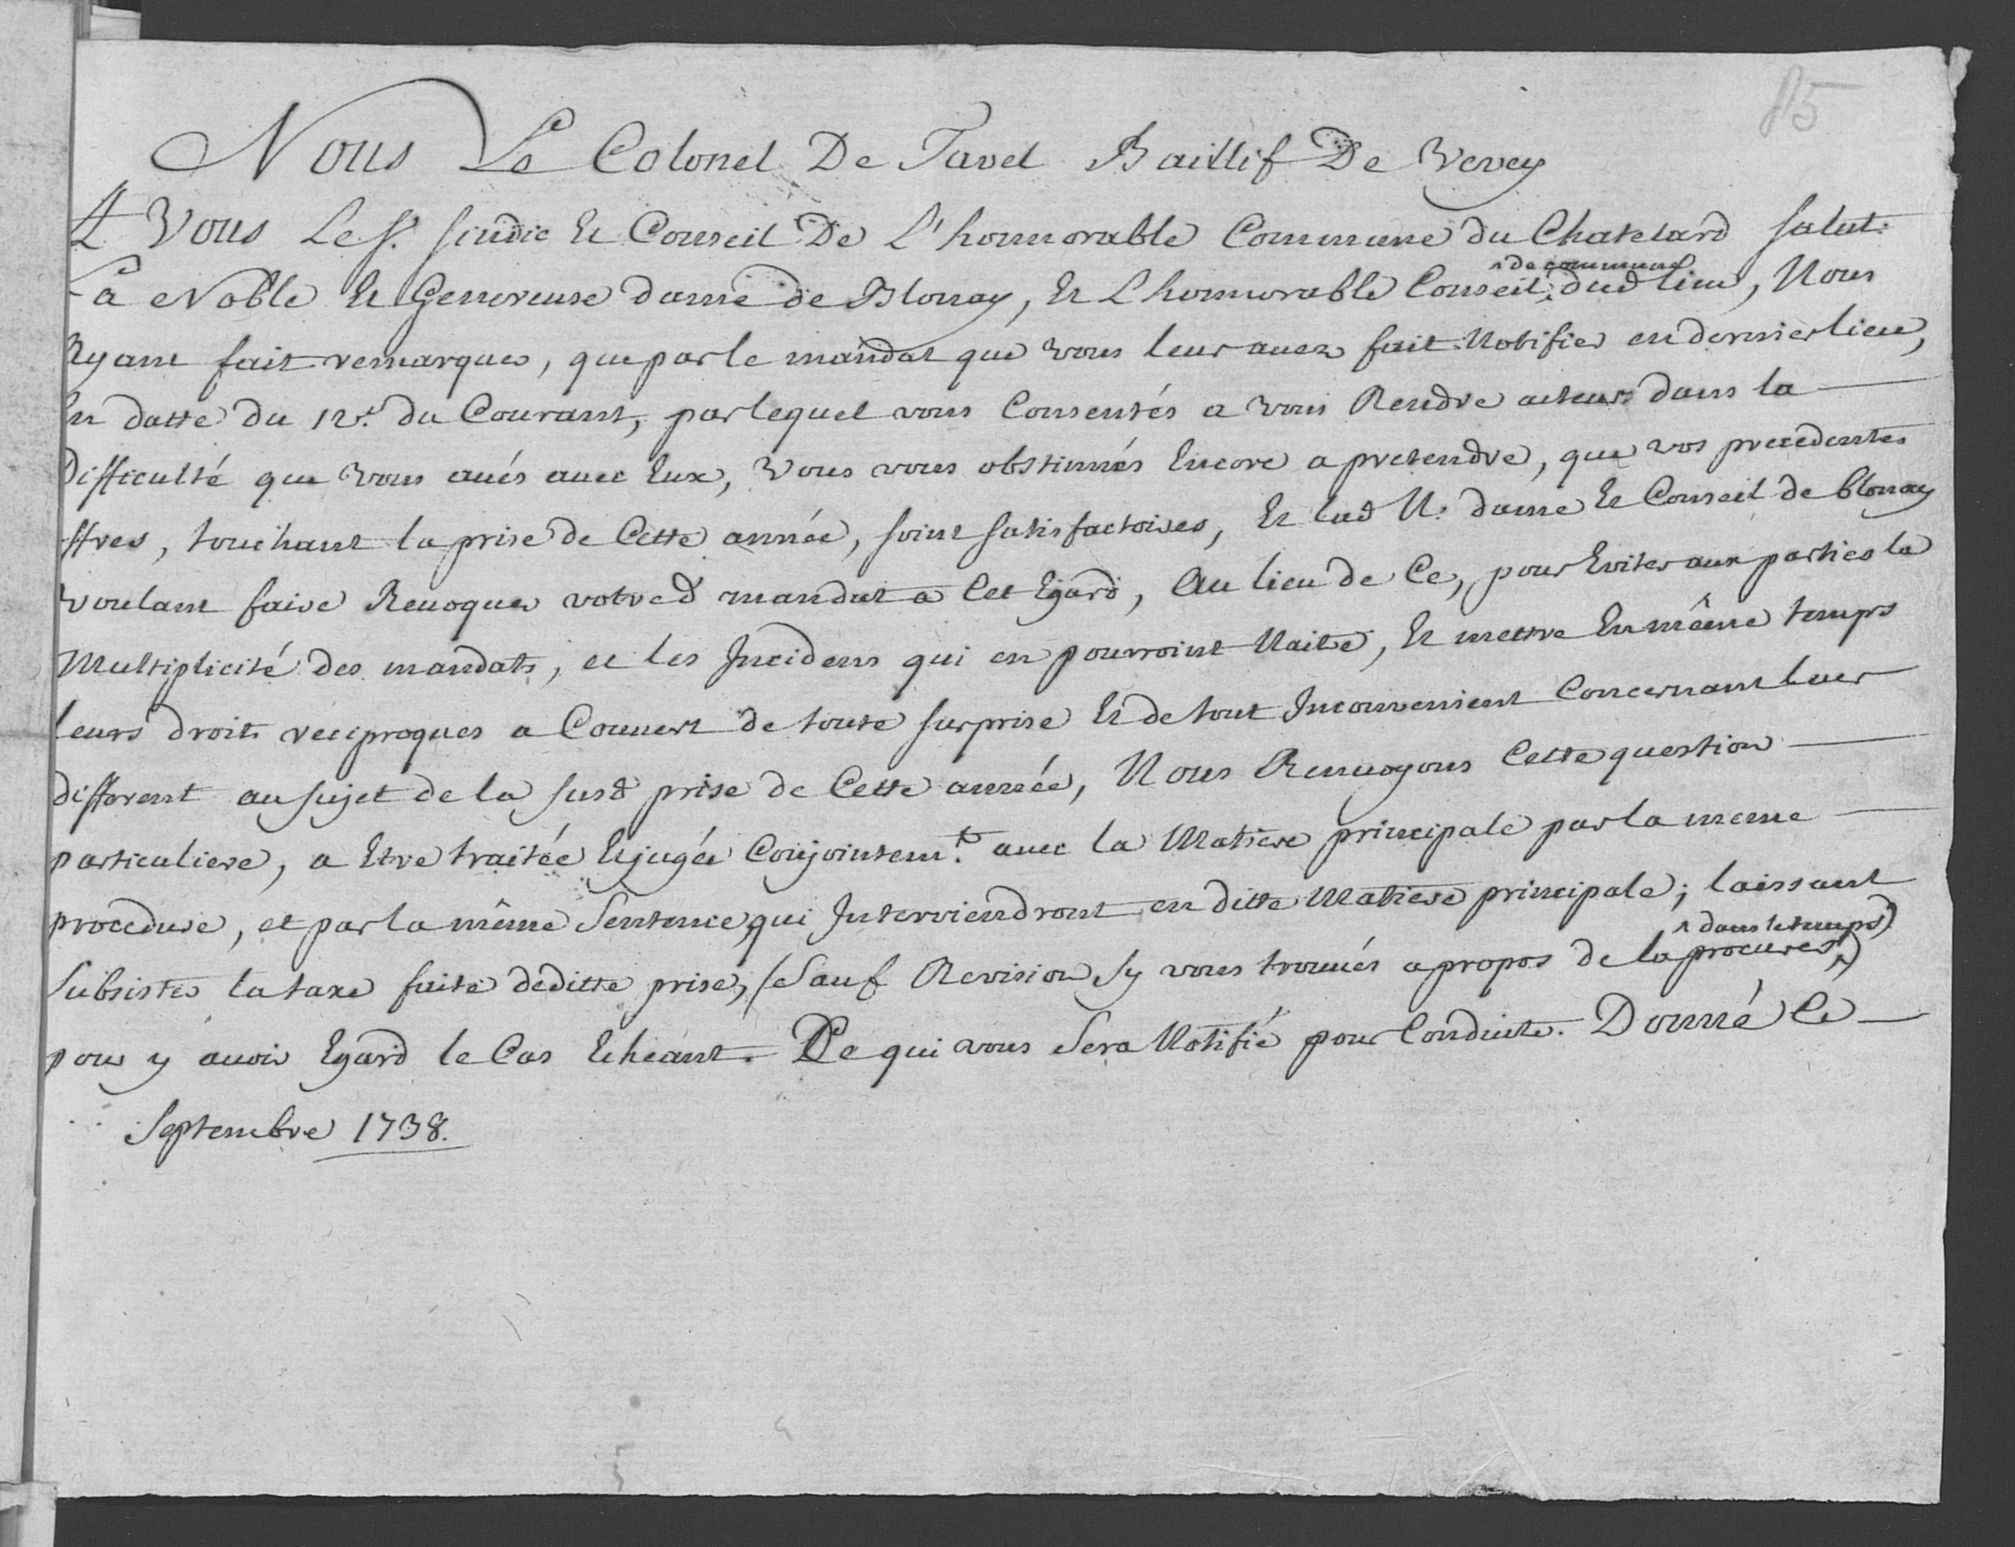 85
Nous Le Colonel De Tavel Baillif De Vevey
A Vous Le Sr. Sindic Et Conseil De L'honnorable Commune du Chatelard Salut.
La Noble Et Genereuse dame de Blonay, Et L'honnorable Conseil ^de commune dud lieu, Nous
Ayant fait remarquer, que par le mandat que vous leur avez fait Notifier en dernier lieu,
En datte du 12e. du Courant, par lequel vous Consentés a vous Rendre acteurs dans la
Difficulté que vous avés avec Eux, vous vous obstinnés Encore a pretendre, que vos precedentes
offres, touchant la prise de Cette année, soint satisfactoires, Et lad N. dame Et Conseil de blonay
voulant faire Revoquer votred mandat a Cet Egard, Au lieu de Ce, pour Eviter aux parties la
Multiplicité des mandats, et les Incidens qui en pourroint Naitre, Et mettre En même temps
leurs droits reciproques a Couvert de toute surprise Et de tout Inconvenient Concernant leur
different au sujet de la susd prise de Cette année, Nous Renvoyons Cette question
particuliere, a Etre traitée Et jugée Conjointemt. avec la Matiere principale par la meme
procedure, et par la même Sentence, qui Interviendront en ditte Matiere principale; laissant
Subsister la taxe faite deditte prise, (Sauf Revision Sy vous trouvés a propos de la procurer ^dans le temps)
pour y avoir Egard le Cas Echeant. Ce qui vous Sera Notifié pour Conduite. Donné Ce
Septembre 1738.